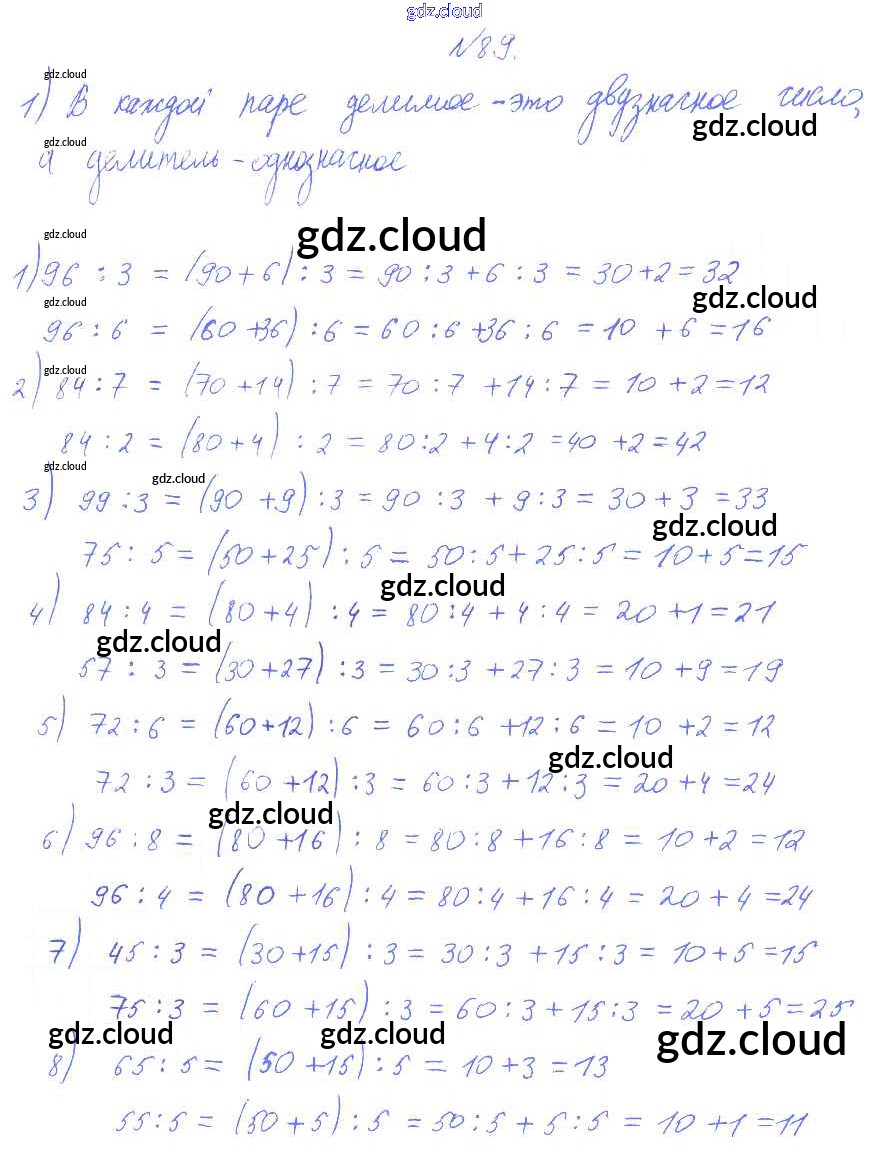 gdz.cloud
№89.
gdz.cloud
1) В каждой паре делимое - это двузначное число,
gdz.cloud
gdz.cloud
а делитель - однозначное
gdz.cloud
gdz.cloud
1) 96 : 3 = (90+6) : 3 = 90 : 3 + 6 : 3 = 30+2 = 32
gdz.cloud
gdz.cloud
96 : 6 = (60+36) : 6 = 60 : 6 + 36 : 6 = 10 + 6 = 16
gdz.cloud
2) 84 : 7 = (70+14) : 7 = 70 : 7 + 14 : 7 = 10 + 2 = 12
84 : 2 = (80+4) : 2 = 80:2 + 4:2 = 40 + 2 = 42
gdz.cloud
gdz.cloud
3) 99 : 3 = (90 + 9) : 3 = 90 : 3 + 9 : 3 = 30 + 3 = 33
gdz.cloud
75 : 5 = (50+25) : 5 = 50 : 5 + 25 : 5 = 10+5 = 15
gdz.cloud
4) 84 : 4 = (80+4) : 4 = 80 : 4 + 4 : 4 = 20 + 1 = 21
gdz.cloud
57 : 3 = (30+27) : 3 = 30 : 3 + 27 : 3 = 10 + 9 = 19
5) 72 : 6 = (60+12) : 6 = 60 : 6 + 12 : 6 = 10 + 2 = 12
gdz.cloud
72 : 3 = (60+12) : 3 = 60 : 3 + 12 : 3 = 20 + 4 = 24
gdz.cloud
6) 96 : 8 = (80+16) : 8 = 80 : 8 + 16 : 8 = 10 + 2 = 12
96 : 4 = (80 + 16) : 4 = 80 : 4 + 16 : 4 = 20 + 4 = 24
7) 45 : 3 = (30+15) : 3 = 30 : 3 + 15 : 3 = 10 + 5 = 15
75 : 3 = (60 + 15) : 3 = 60 : 3 + 15 : 3 = 20 + 5 = 25
gdz.cloud
gdz.cloud
gdz.cloud
8) 65 : 5 = (50 + 15) : 5 = 10 + 3 = 13
55 : 5 = (50 + 5) : 5 = 50 : 5 + 5 : 5 = 10 + 1 = 11